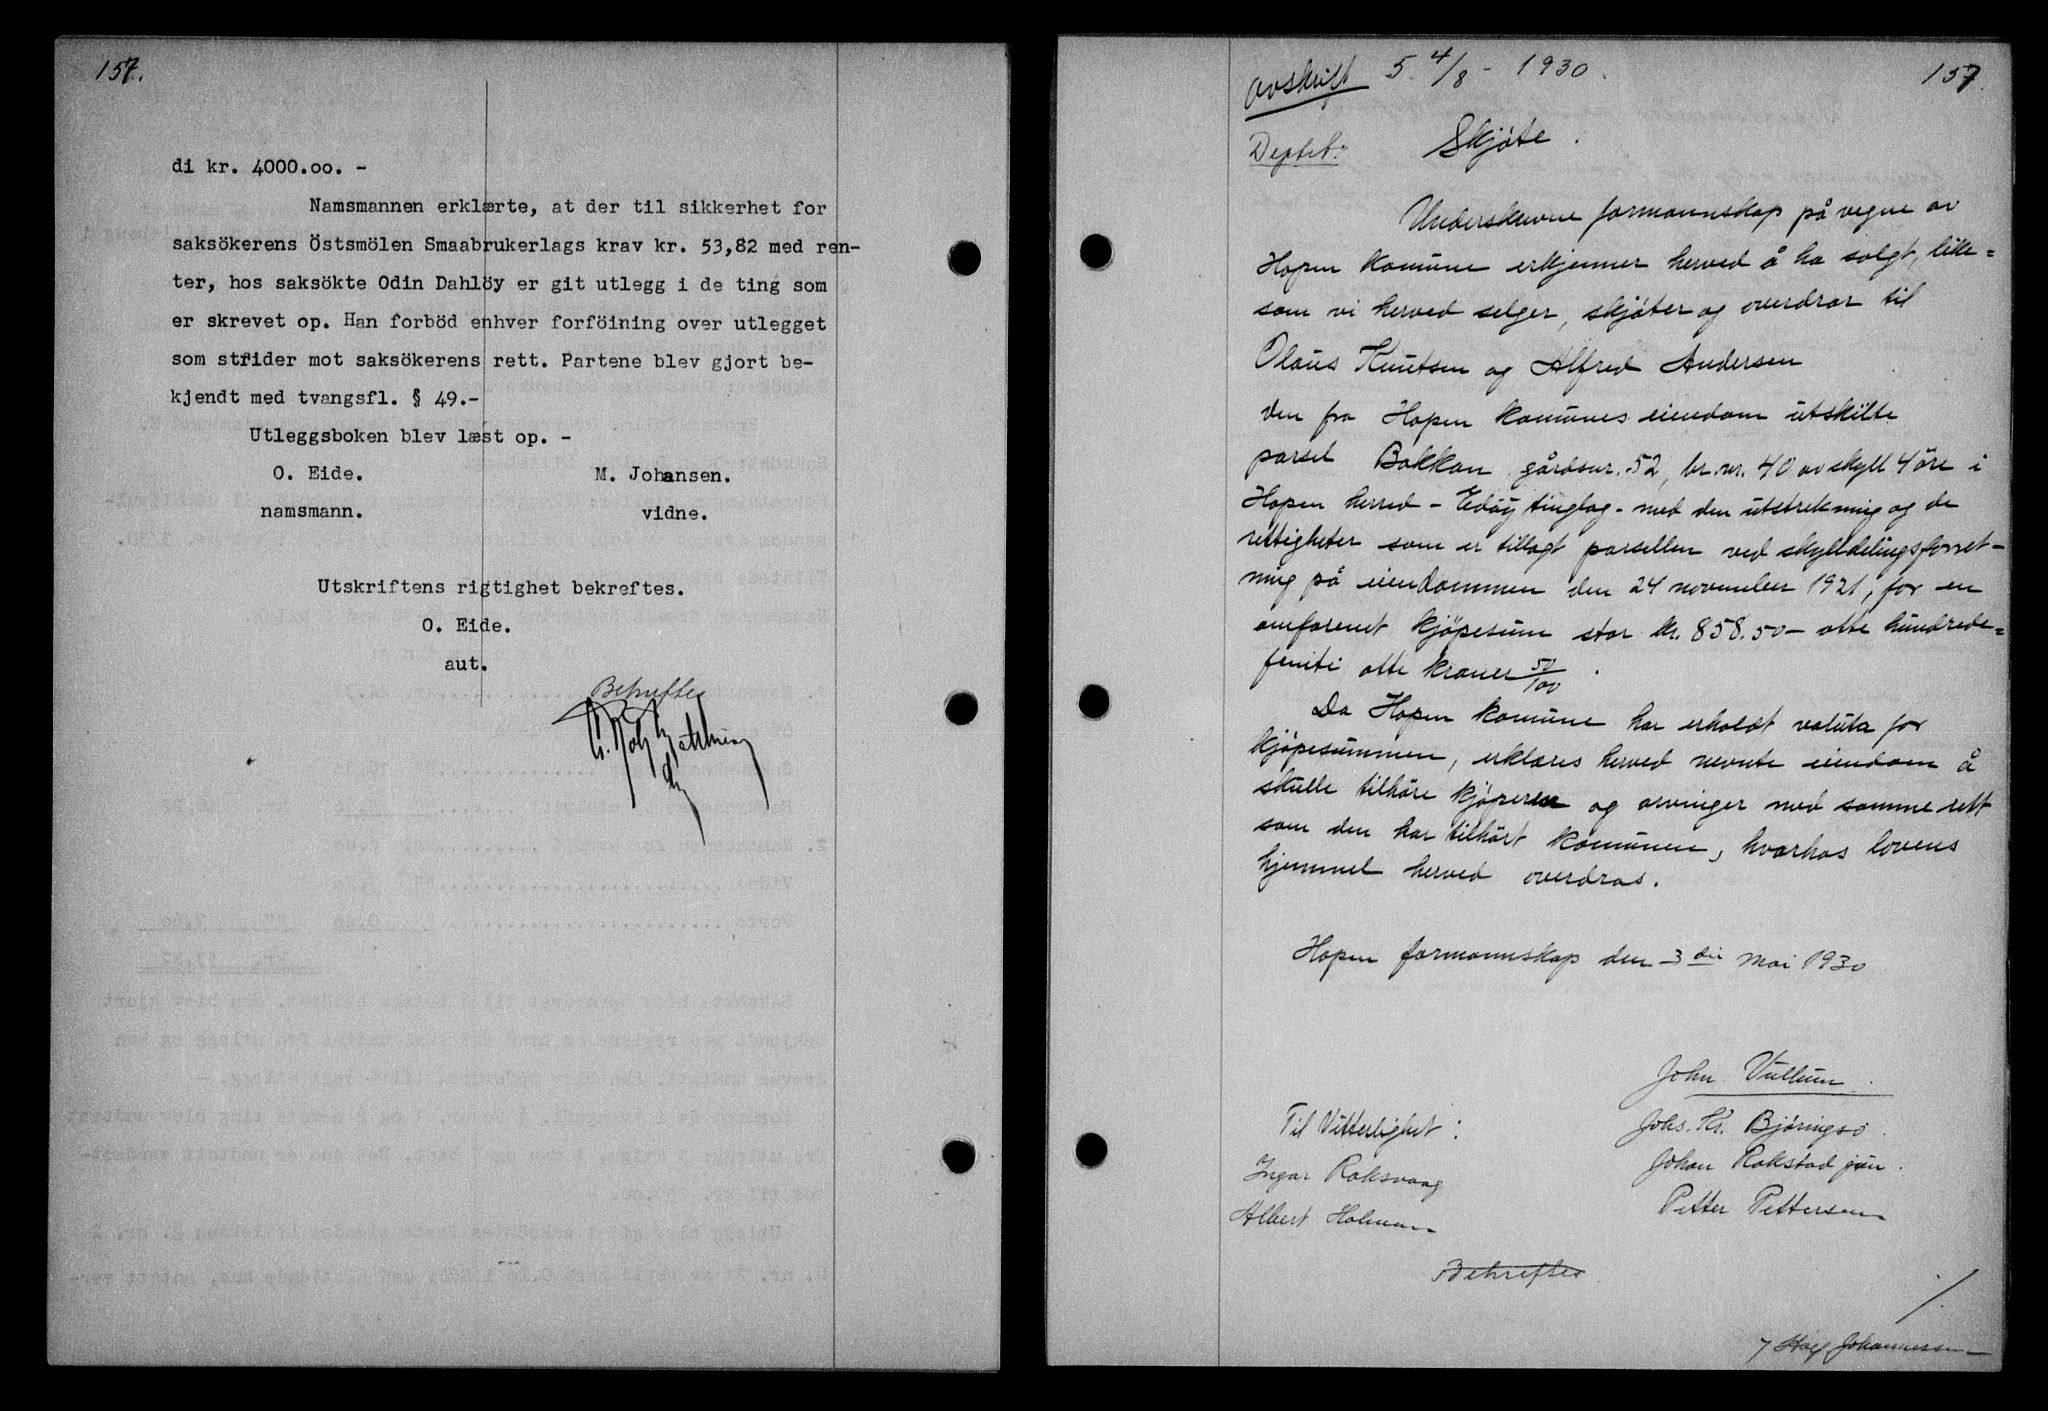 157.
di kr. 4000.oo. -
Namsmannen erklærte, at der til sikkerhet for
saksökerens Östsmölen Smaabrukerlags krav kr. 53,82 med ren-
ter, hos saksökte Odin Dahlöy er git utlegg i de ting som
er skrevet op. Han forböd enhver forföining over utlegget
som strider mot saksökerens rett. Partene blev gjort be-
kjendt med tvangsfl. § 49.-
Utleggsboken blev læst op. -
O. Eide. M. Johansen.
namsmann. vidne.
Utskriftens rigtighet bekreftes.
O. Eide.
aut.
Bekreftes
157
Avskrift 5. 4/8 - 1930.
Deptet:
Skjøte.
Underskevne formannskap på vegne av
Hopen komune erkjenner herved å ha solgt, like=
som vi herved selger, skjøter og overdrar til
Olaus Knutsen og Alfred Andersen
den fra Hopen komunes eiendom utskilte
parsel Bakkan gårdsnr. 52, br. nr. 40 av skyll 4 öre i
Hopen herred - Edøy tinglag - med den utstrekning og de
rettigheter som er tillagt parsellen ved skylldelingsforret-
ning på eiendommen den 24 november 1921, for en
omforenet kjöpesum stor kr. 858.50 - otte hundrede=
femti otte kroner 50/100.
Da Hopen komune har erholdt valuta for
kjøpesummen, erklæres herved nevnte eiendom å
skulle tilhöre kjøperen og arvinger med samme rett
som den har tilhört komunen, hvorhos lovens
hjemmel herved overdras.
Hopen formannskap den 3 die mai 1930
John Vullum.
Til Vitterlighet: Johs. Kr. Bjøringsö.
Ingar Roksvaag Johan Rokstad jun.
Albert Holmen Petter Pettersen
Bekreftes
Johannessen